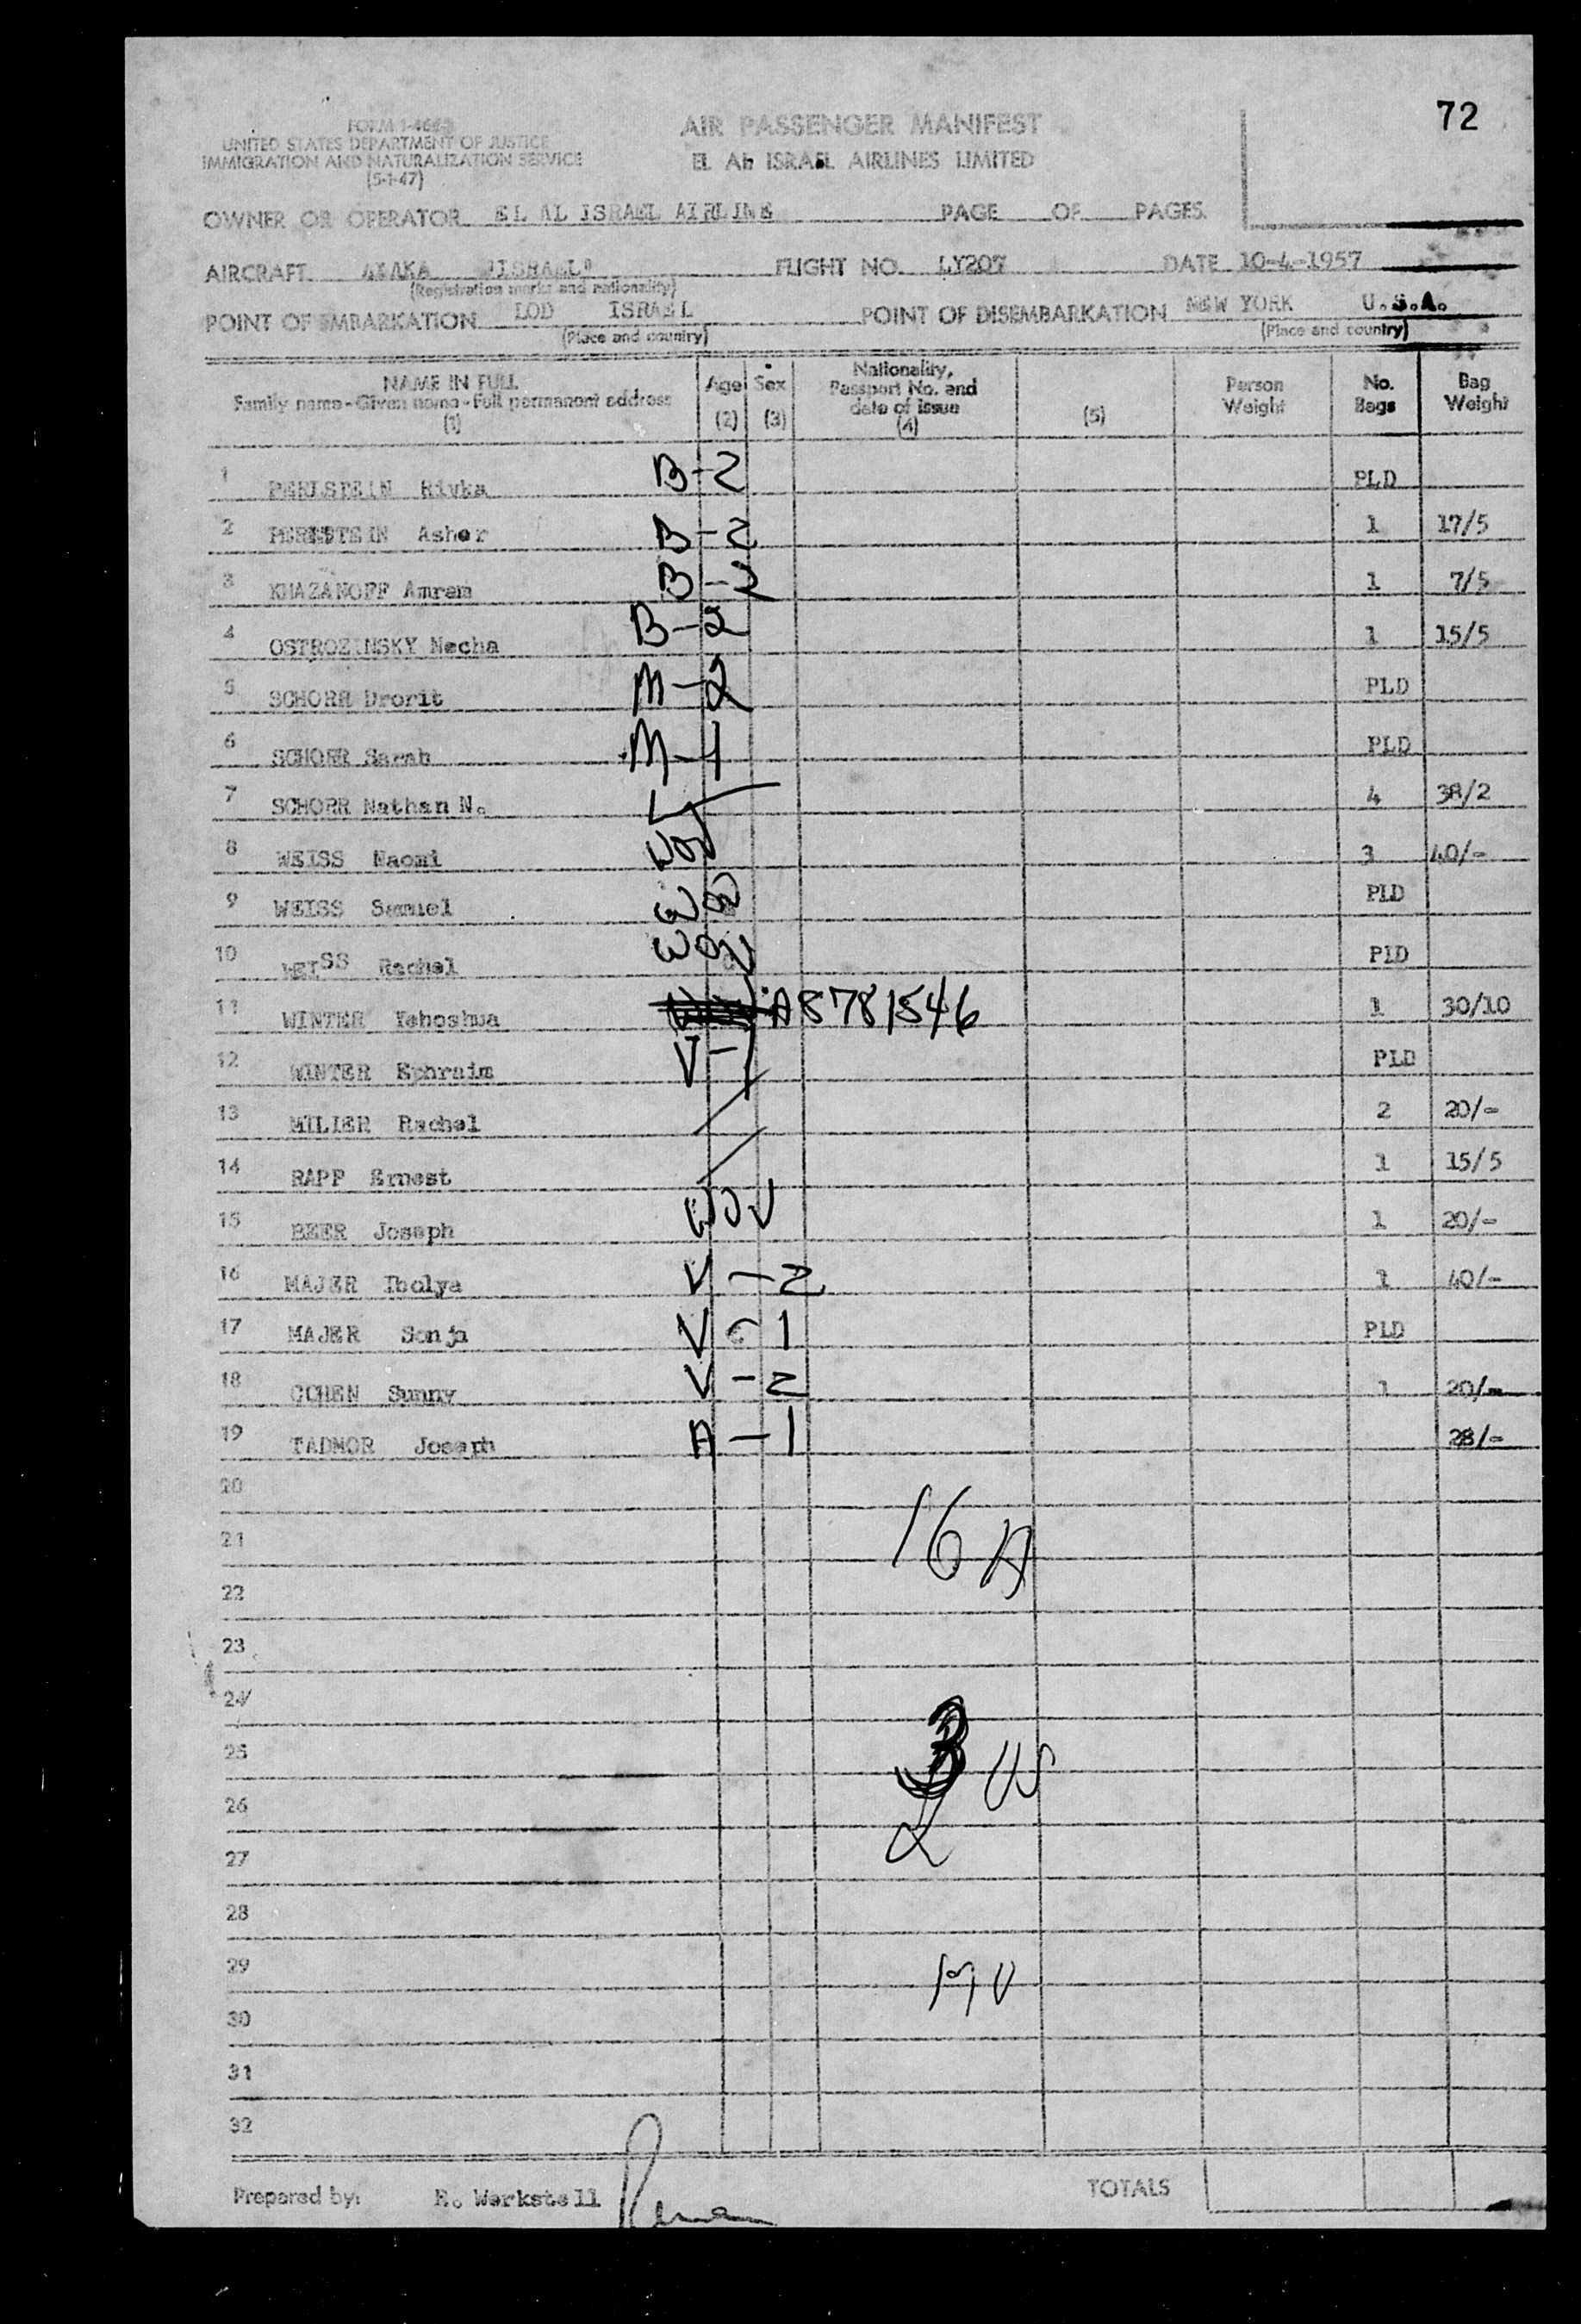 72
FORM I-466
UNITED STATES DEPARTMENT OF JUSTICE
IMMIGRATION AND NATURALIZATION SERVICE
(5-1-47)
AIR PASSENGER MANIFEST
EL AL ISRAEL AIRLINES LIMITED
OWNER OR OPERATOR EL AL ISRAEL AIRLINE PAGE OF PAGES
AIRCRAFT FLIGHT NO. LY207 DATE 10-4-1957
(Registration marks and nationality)
POINT OF EMBARKATION LOD ISRAEL POINT OF DISEMBARKATION NEW YORK U.S.A.
(Place and country) (Place and country)
NAME IN FULL
Family name-Given name-Full permanent address
(1)
Age
(2)
Sex
(3)
Nationality,
Passport No. and
date of issue
(4)
(5)
Person
Weight
No.
Bags
Bag
Weight
1 Rivka B-2 PLD
2 Asher B-2 1 17/5
3 KHAZANOFF Amram B-2 1 7/5
4 OSTROZINSKY Necha B-2 1 15/5
5 SCHORR Drorit M-2 PLD
6 SCHORR Sarah M-1 PLD
7 SCHORR Nathan N. 4 38/2
8 WEISS Naomi 3 40/-
9 WEISS Samuel PLD
10 WEISS Rachel PLD
11 WINTER Yehoshua A8781546 1 30/10
12 WINTER Ephraim V-1 PLD
13 MILLER Rachel 2 20/-
14 RAPP Ernest 1 15/5
15 BEER Joseph 1 20/-
16 MAJER Ibolya V-2 1 40/-
17 MAJER Sonja V-1 PLD
18 COHEN Sunny V-2 1 20/-
19 TADMOR Joseph A-1 28/-
20
16 A
21
22
23
24
25
3 US
26
2
27
28
29
30
31
32
Prepared by: R. Werkstell TOTALS